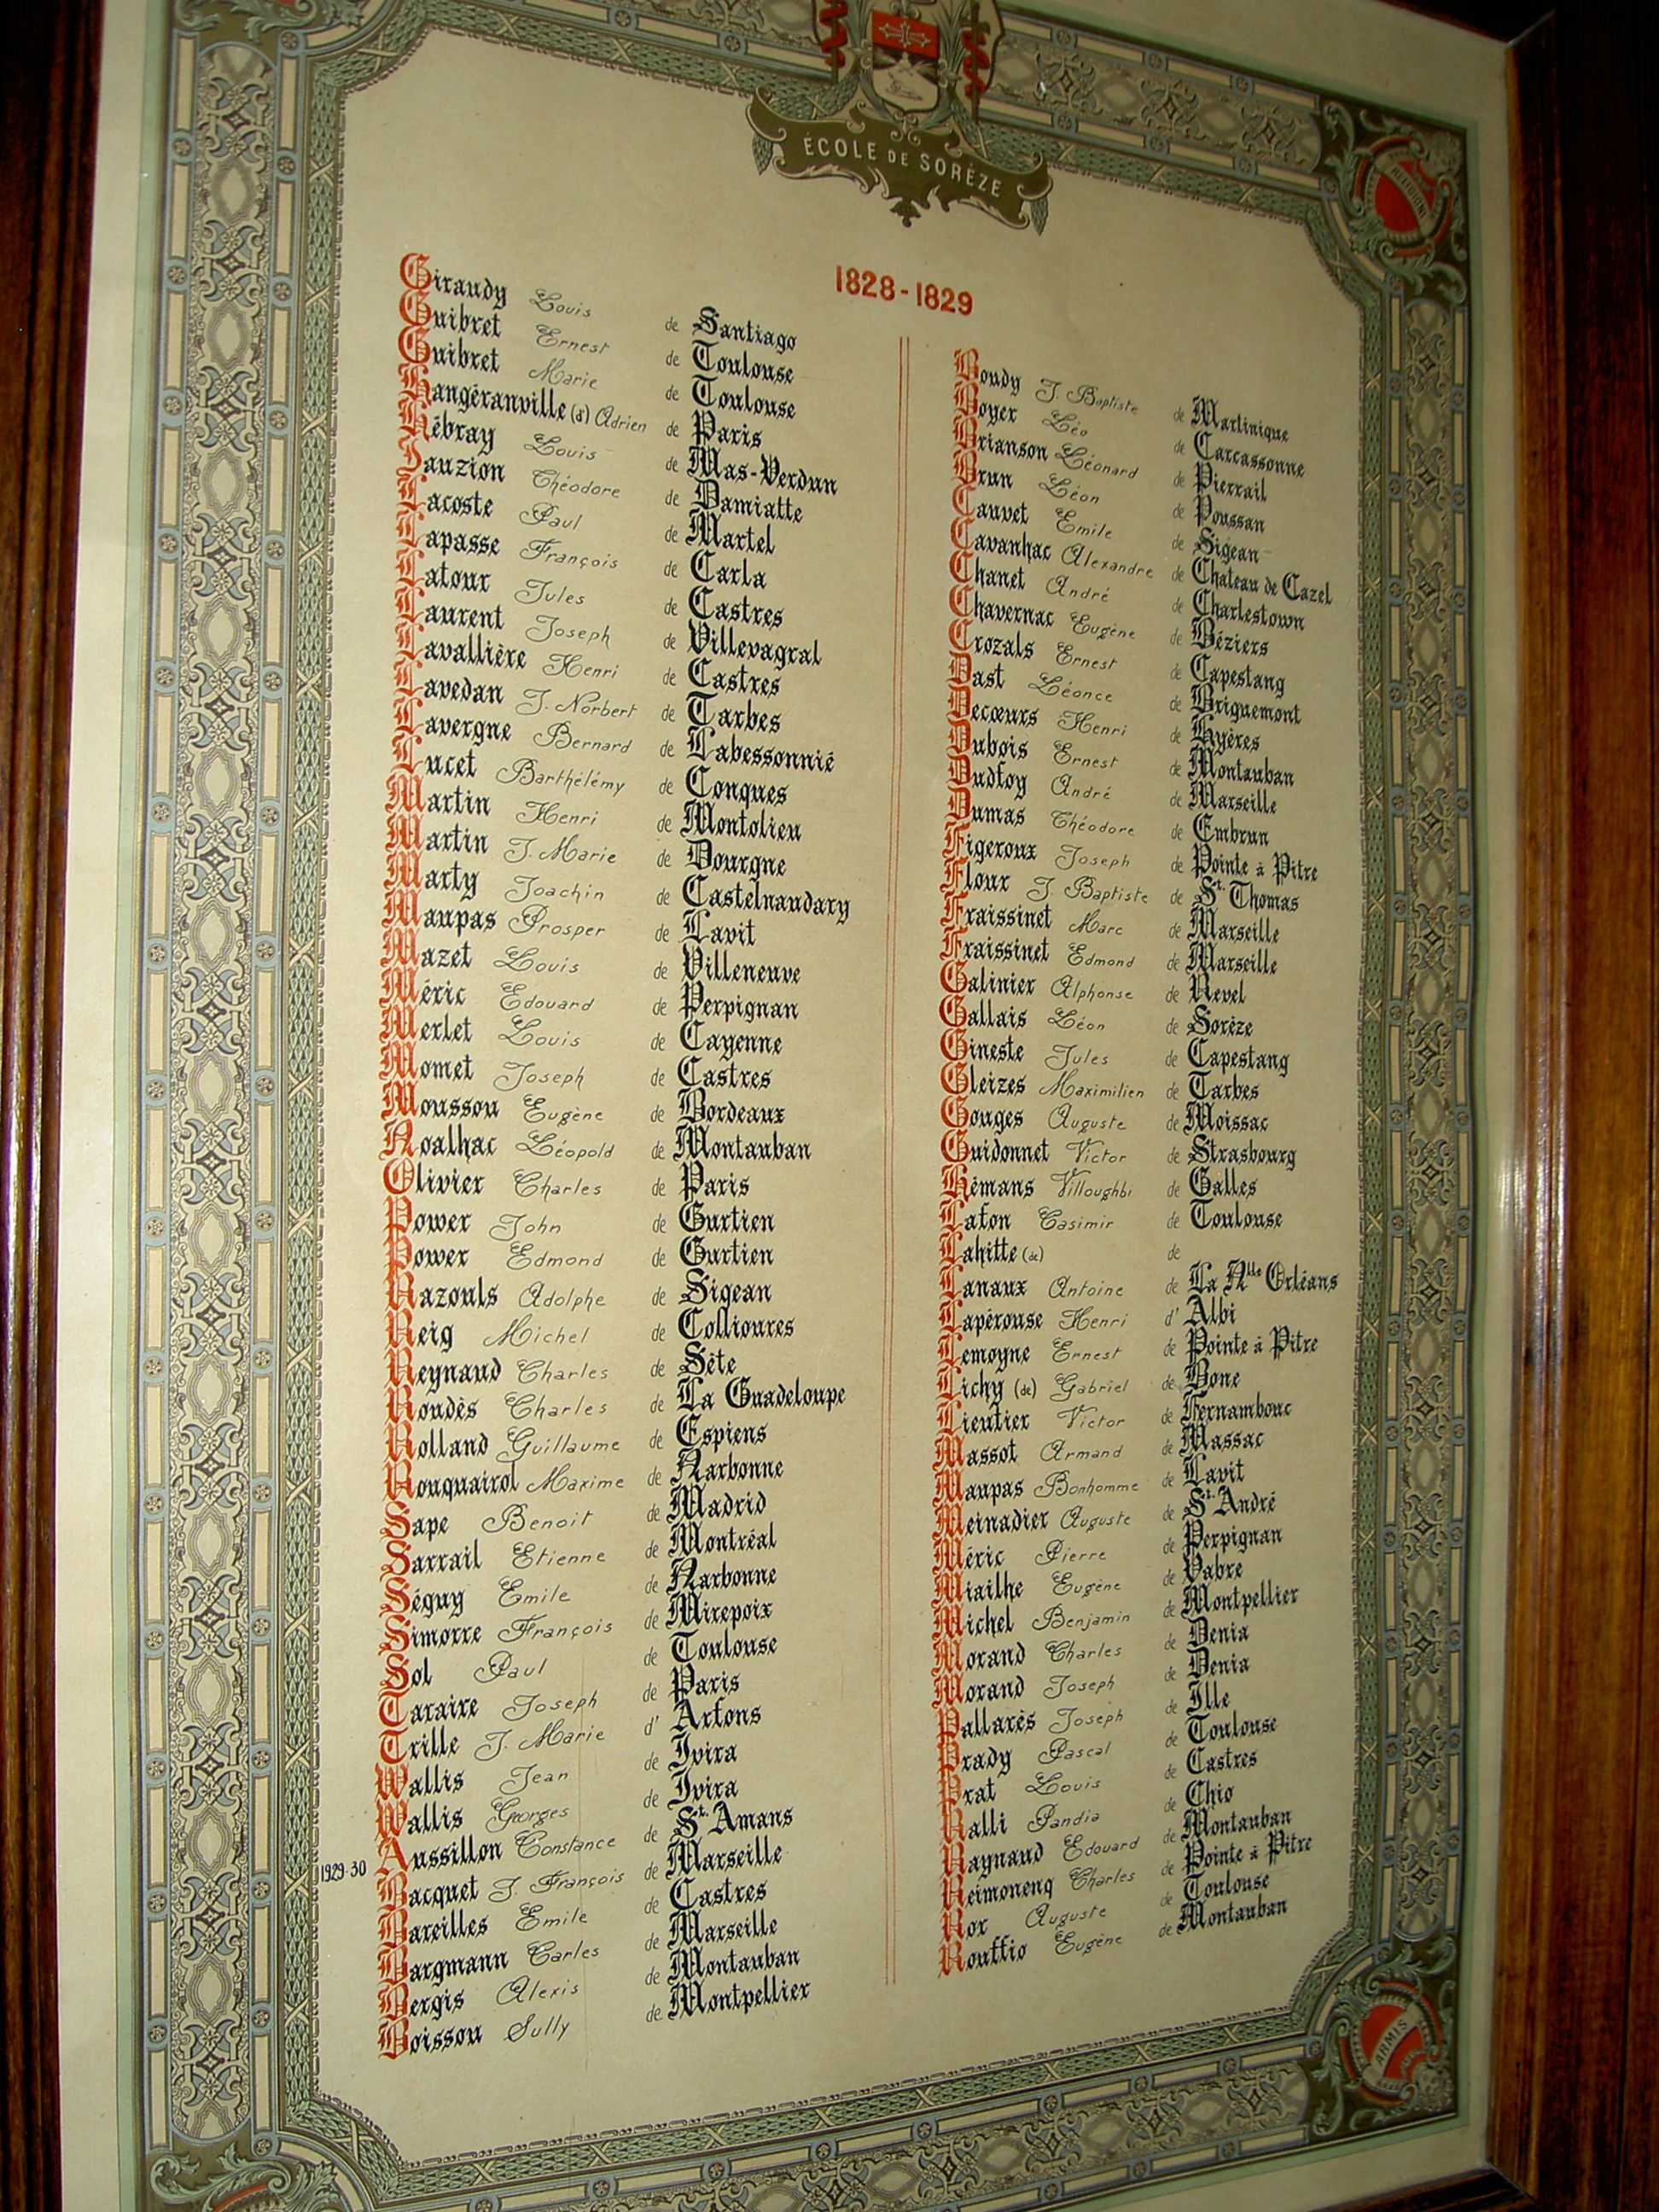 ÉCOLE DE SORÈZE
RELIGIONI
1828-1829
Giraudy Louis de Santiago
Guibret Ernest de Toulouse
Guibret Marie de Toulouse
Hangéranville (d') Adrien de Paris
Hébray Louis de Mas-Verdun
Jauzion Théodore de Damiatte
Lacoste Paul de Martel
Lapasse François de Carla
Latour Jules de Castres
Laurent Joseph de Villevagral
Lavallière Henri de Castres
Lavedan J. Norbert de Tarbes
Lavergne Bernard de Labessonnié
Lucet Barthélémy de Conques
Martin Henri de Montolieu
Martin J. Marie de Dourgne
Marty Joachin de Castelnaudary
Maupas Prosper de Lavit
Mazet Louis de Villeneuve
Méric Edouard de Perpignan
Merlet Louis de Cayenne
Momet Joseph de Castres
Moussou Eugène de Bordeaux
Noalhac Léopold de Montauban
Olivier Charles de Paris
Power John de Gurtien
Power Edmond de Gurtien
Razouls Adolphe de Sigean
Reig Michel de Collioures
Reynaud Charles de Sète
Roudès Charles de La Guadeloupe
Rolland Guillaume de Espiens
Rouquairol Maxime de Narbonne
Sape Benoit de Madrid
Sarrail Etienne de Montréal
Séguy Emile de Narbonne
Simorre François de Mirepoix
Sol Paul de Toulouse
Taraire Joseph de Paris
Trille J. Marie d' Arfons
Wallis Jean de Ivira
Wallis Georges de Ivira
1929-30 Aussillon Constance de St. Amans
Bacquet J. François de Marseille
Bareilles Emile de Castres
Bargmann Carles de Marseille
Bergis Alexis de Montauban
Boissou Sully de Montpellier
Boudy J. Baptiste de Martinique
Boyer Léo de Carcassonne
Brianson Léonard de Pierrail
Brun Léon de Poussan
Cauvet Emile de Sigean
Cavanhac Alexandre de Chateau de Cazel
Chanet André de Charlestown
Chavernac Eugène de Béziers
Crozals Ernest de Capestang
Dast Léonce de Briguemont
Decœurs Henri de Hyères
Dubois Ernest de Montauban
Dudfoy André de Marseille
Dumas Théodore de Embrun
Figeroux Joseph de Pointe à Pitre
Flour J. Baptiste de St. Thomas
Fraissinet Marc de Marseille
Fraissinet Edmond de Marseille
Galinier Alphonse de Revel
Gallais Léon de Sorèze
Gineste Jules de Capestang
Gleizes Maximilien de Tarbes
Gouges Auguste de Moissac
Guidonnet Victor de Strasbourg
Hémans Villoughbi de Galles
Lafon Casimir de Toulouse
Lahitte (de) de
Lanaux Antoine de La Nlle Orléans
Lapérouse Henri d' Albi
Lemoyne Ernest de Pointe à Pitre
Lichy (de) Gabriel de Bone
Lieutier Victor de Fernambouc
Massot Armand de Massac
Maupas Bonhomme de Lavit
Meinadier Auguste de St. André
Méric Pierre de Perpignan
Miailhe Eugène de Vabre
Michel Benjamin de Montpellier
Morand Charles de Denia
Morand Joseph de Denia
Pallarès Joseph de Ille
Prady Pascal de Toulouse
Prat Louis de Castres
Ralli Pandia de Chio
Raynaud Edouard de Montauban
Reimonenq Charles de Pointe à Pitre
Rox Auguste de Toulouse
Rouffio Eugène de Montauban
ARMIS